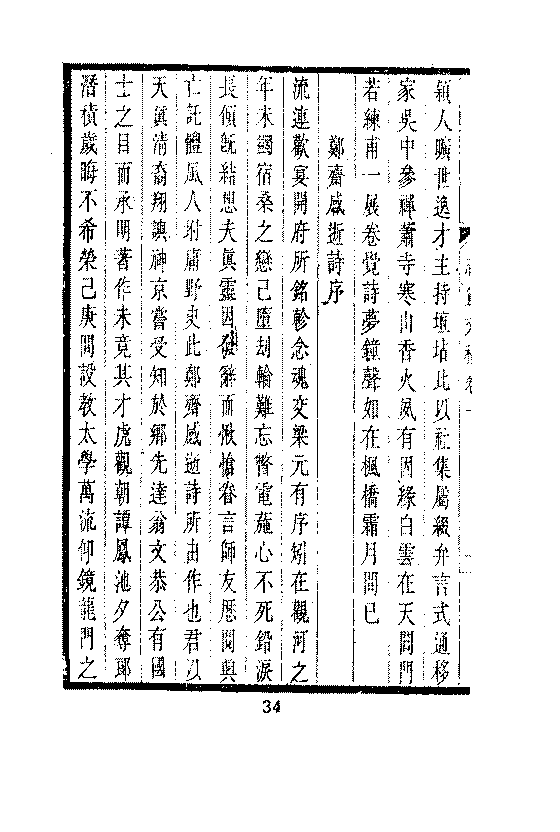 穎人曠世逸才主持壇坫此以社集屬綴弁言式通移
家吳中參禪蕭寺寒山香火夙有因緣白雲在天閶門
若練甫一展卷覺詩夢鐘聲如在楓橋霜月間已
鄭齋感逝詩序
流連歡宴開府所銘軫念魂交梁元有序矧在觀河之
年未蠲宿桑之戀已墮劫輪難忘瞥電蕤心不死鉛淚
長傾旣結想夫眞靈因破辭而愀愴眷言師友歷閱興
亡託體風人坿庸野史此鄭齋感逝詩所由作也君以
天眞淸裔翔譔神京嘗受知於鄕先達翁文恭公有國
士之目而承明著作未竟其才虎觀朝譚鳳池夕奪郢
潛積歲晦不希榮己庚間設敎太學萬流仰鏡龍門之
34